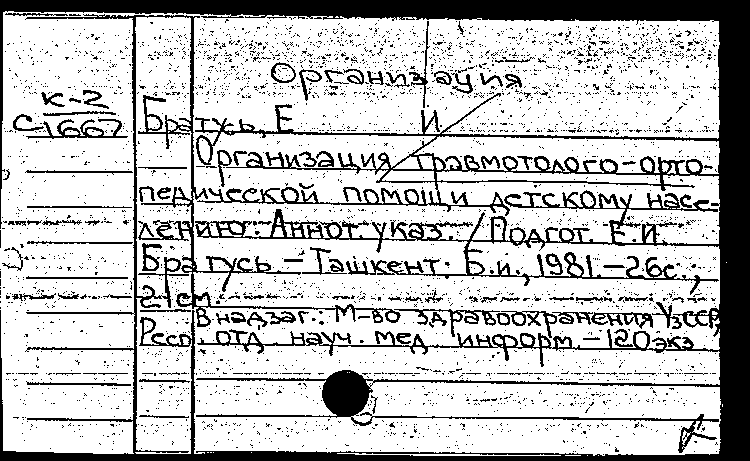 Организация
К-2
С-1667
Братусь, Е И.
Организация травмотолого-орто-
педической помощи детскому насе-
лению: Аннот. указ. / Подгот. Е.И.
Братусь. - Ташкент: Б.и., 1981. - 26с.;
21см.
В надзаг.: М-во здравоохранения УзССР,
Респ. отд науч. мед информ. - 120экз